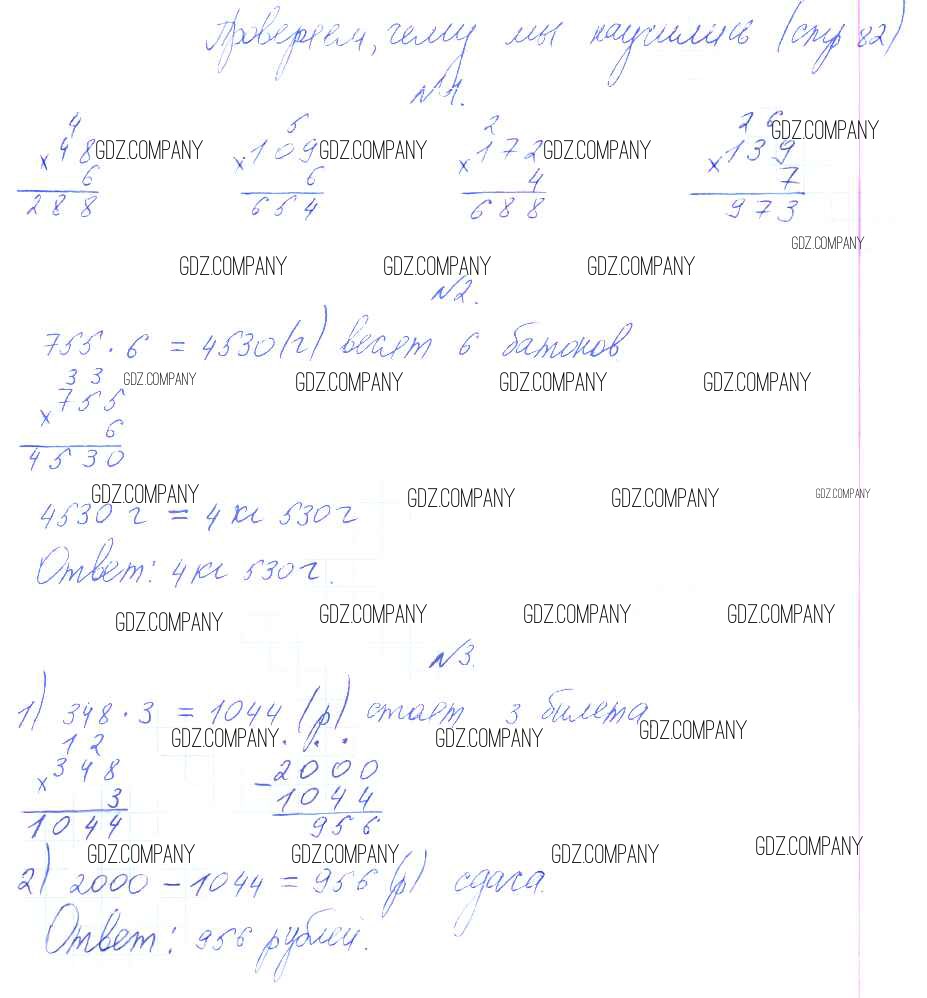 Проверяем, чему мы научились (стр 82)
№1.
4 5 2 2 6
× 48 × 109 × 172 × 139
6 6 4 7
288 654 688 973
GDZ.COMPANY GDZ.COMPANY GDZ.COMPANY GDZ.COMPANY
GDZ.COMPANY
GDZ.COMPANY GDZ.COMPANY GDZ.COMPANY
№2.
755 · 6 = 4530 (г) весят 6 батонов
3 3
GDZ.COMPANY GDZ.COMPANY GDZ.COMPANY GDZ.COMPANY
× 755
6
4530
GDZ.COMPANY GDZ.COMPANY GDZ.COMPANY GDZ.COMPANY
4530 г = 4 кг 530 г
Ответ: 4 кг 530 г.
GDZ.COMPANY GDZ.COMPANY GDZ.COMPANY GDZ.COMPANY
№3.
1) 348 · 3 = 1044 (р) стоят 3 билета
GDZ.COMPANY GDZ.COMPANY GDZ.COMPANY
1 2 . . .
× 348 − 2000
3 1044
1044 956
GDZ.COMPANY GDZ.COMPANY GDZ.COMPANY GDZ.COMPANY
2) 2000 − 1044 = 956 (р) сдача.
Ответ: 956 рублей.